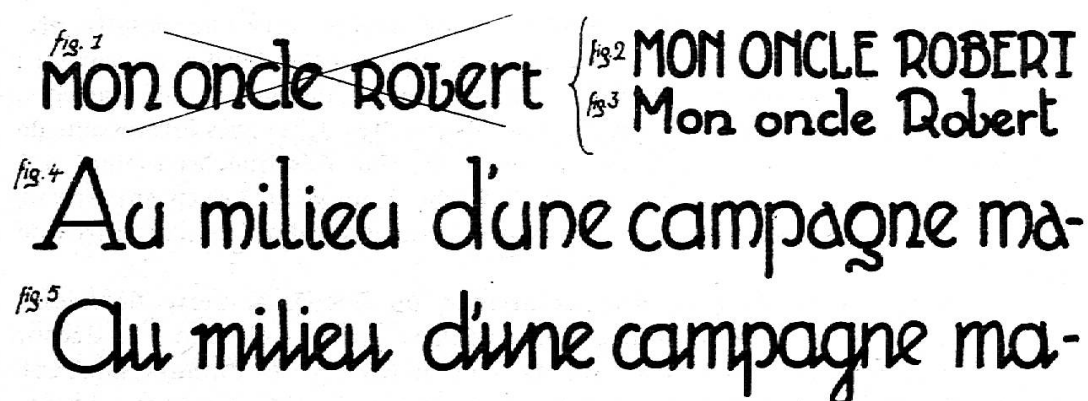 fig. 1
Mon oncle Robert
fig. 2 MON ONCLE ROBERT
fig. 3 Mon oncle Robert
fig. 4 Au milieu d'une campagne ma-
fig. 5 Au milieu d'une campagne ma-